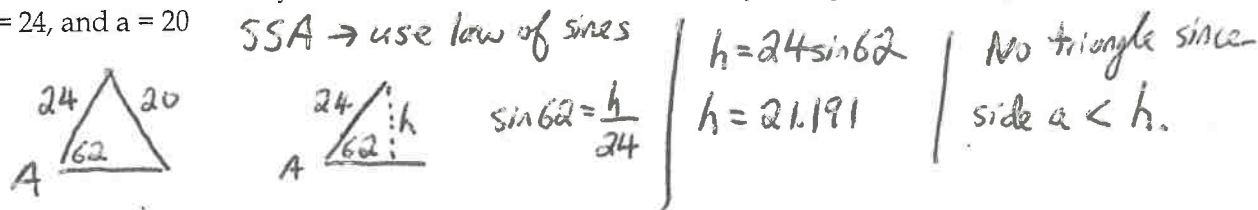 = 24, and a = 20
SSA → use law of sines
24
20
62
A
24
h
62
A
sin 62 = h/24
h = 24 sin 62
h = 21.191
No triangle since
side a < h.